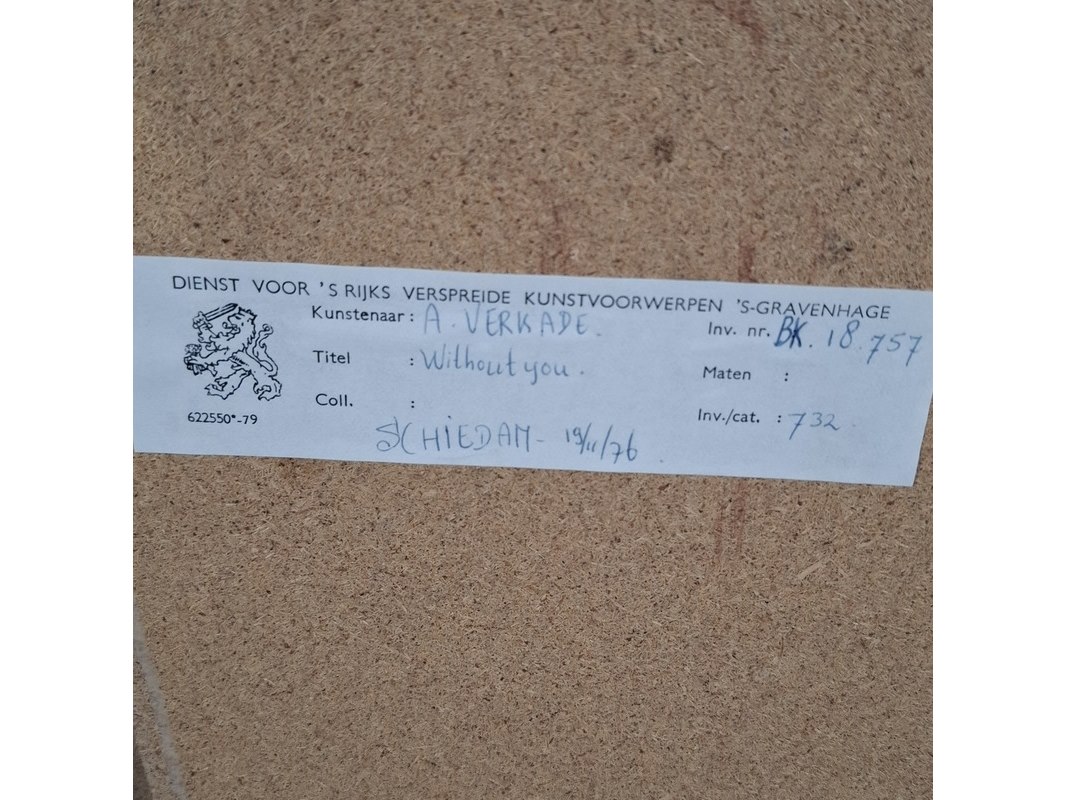 DIENST VOOR 'S RIJKS VERSPREIDE KUNSTVOORWERPEN 'S-GRAVENHAGE
Kunstenaar : A. VERKADE. Inv. nr. BK. 18.757
Titel : Without you. Maten :
Coll. : Inv./cat. : 732
622550*-79
SCHIEDAM - 19/11/76